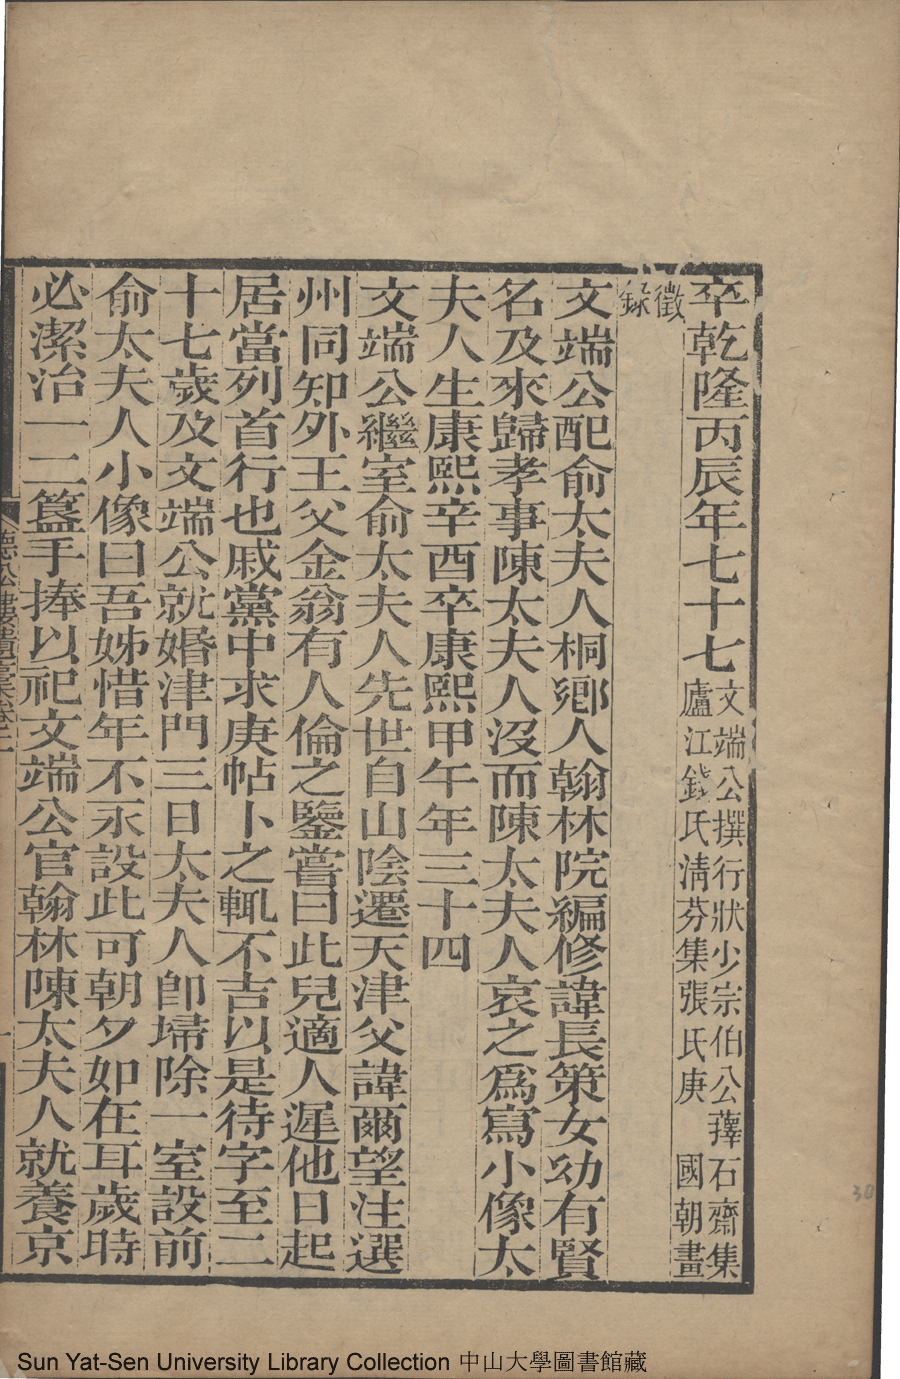 卒乾隆丙辰年七十七文端公撰行狀少宗伯公蘀石齋集
廬江錢氏清芬集張氏庚　國朝畫
徵
錄
文端公配俞太夫人桐鄉人翰林院編修諱長策女幼有賢
名及來歸孝事陳太夫人沒而陳太夫人哀之爲寫小像太
夫人生康熙辛酉卒康熙甲午年三十四
文端公繼室俞太夫人先世自山陰遷天津父諱爾望注選
州同知外王父金翁有人倫之鑒嘗曰此兒適人遲他日起
居當列首行也戚黨中求庚帖卜之輒不吉以是待字至二
十七歲及文端公就婚津門三日太夫人卽埽除一室設前
俞太夫人小像曰吾姊惜年不永設此可朝夕如在耳歲時
必潔治一二簋手捧以祀文端公官翰林陳太夫人就養京
Sun Yat-Sen University Library Collection 中山大學圖書館藏